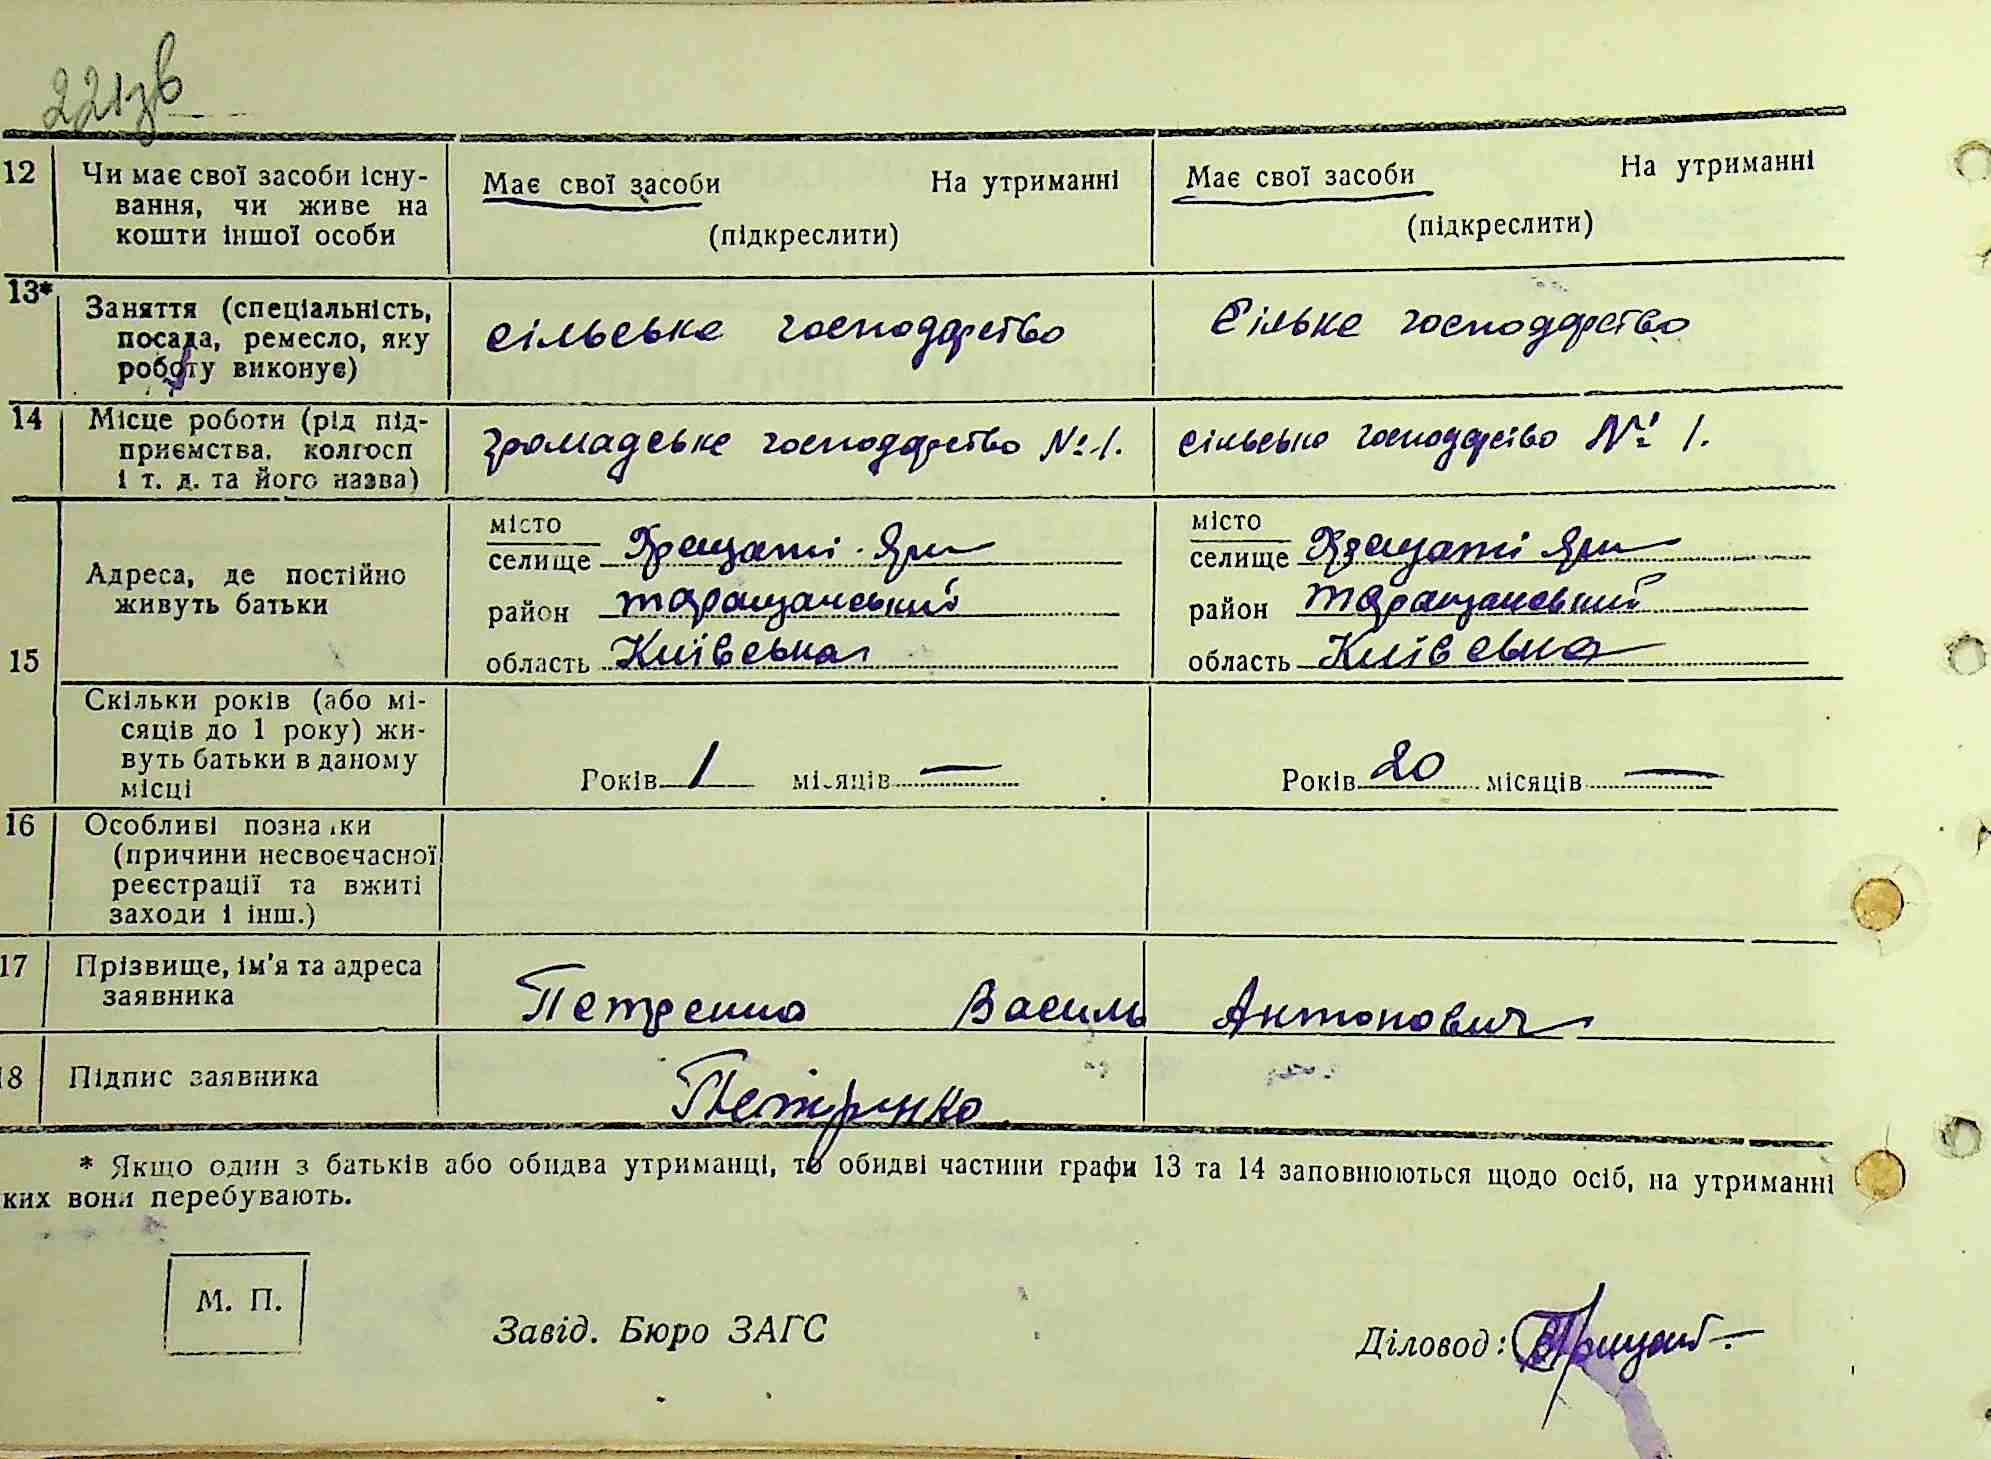 221зв
12 Чи має свої засоби існу- Має свої засоби На утриманні Має свої засоби На утриманні
вання, чи живе на
кошти іншої особи (підкреслити) (підкреслити)
13* Заняття (спеціальність, сільське господарство Сільке господарство
посада, ремесло, яку
роботу виконує)
14 Місце роботи (рід під- громадське господарство №1. сільсько господарство № 1.
приємства, колгосп
і т. д. та його назва)
15 Адреса, де постійно
живуть батьки
місто місто
селище Хрещаті Яри селище Хрещаті Яри
район таращанський район таращанський
область Київська область Київська
Скільки років (або мі-
сяців до 1 року) жи-
вуть батьки в даному
місці
Років 1 місяців — Років 20 місяців —
16 Особливі познаки
(причини несвоєчасної
реєстрації та вжиті
заходи і інш.)
17 Прізвище, ім'я та адреса
заявника Петренко Василь Антонович
18 Підпис заявника Петренко
* Якщо один з батьків або обидва утриманці, то обидві частини графи 13 та 14 заповнюються щодо осіб, на утриманні
ких вони перебувають.
М. П.
Завід. Бюро ЗАГС Діловод: